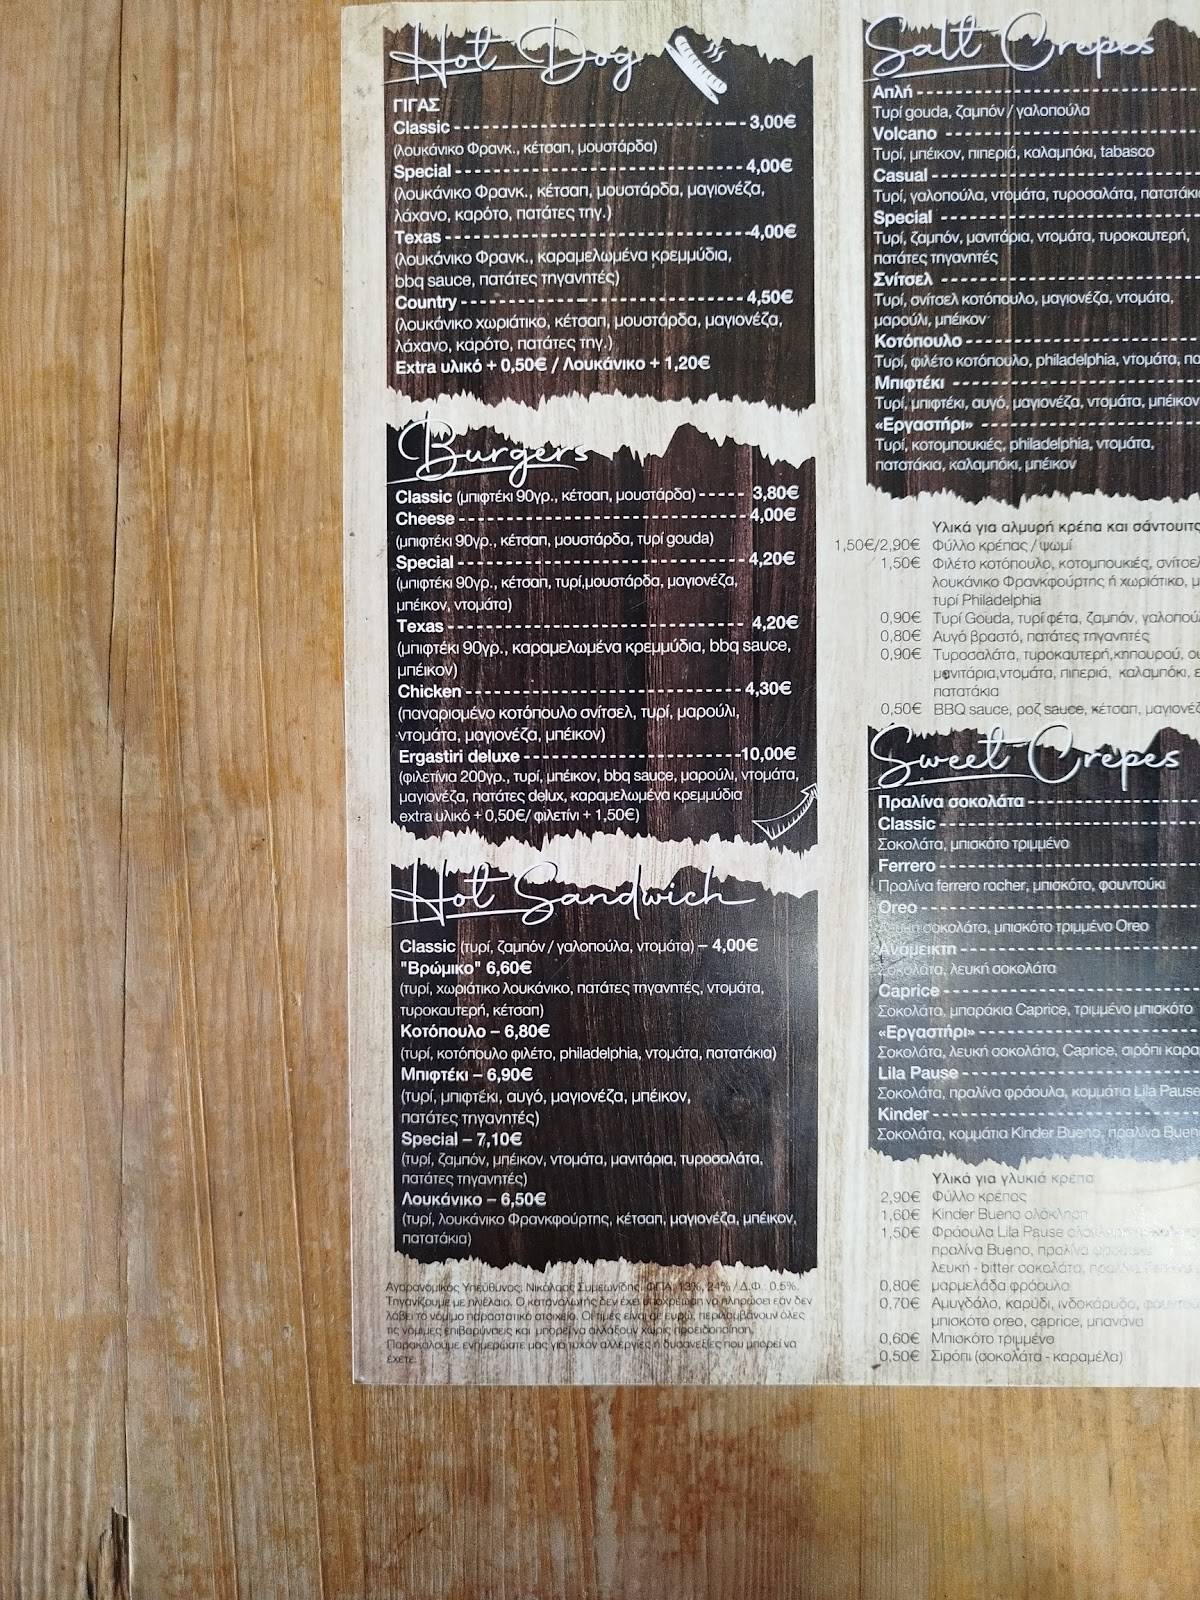 Hot Dog
ΓΙΓΑΣ
Classic 3,00€
(λουκάνικο Φρανκ., κέτσαπ, μουστάρδα)
Special 4,00€
(λουκάνικο Φρανκ., κέτσαπ, μουστάρδα, μαγιονέζα,
λάχανο, καρότο, πατάτες τηγ.)
Texas 4,00€
(λουκάνικο Φρανκ., καραμελωμένα κρεμμύδια,
bbq sauce, πατάτες τηγανητές)
Country 4,50€
(λουκάνικο χωριάτικο, κέτσαπ, μουστάρδα, μαγιονέζα,
λάχανο, καρότο, πατάτες τηγ.)
Extra υλικό + 0,50€ / Λουκάνικο + 1,20€
Burgers
Classic (μπιφτέκι 90γρ., κέτσαπ, μουστάρδα) 3,80€
Cheese 4,00€
(μπιφτέκι 90γρ., κέτσαπ, μουστάρδα, τυρί gouda)
Special 4,20€
(μπιφτέκι 90γρ., κέτσαπ, τυρί,μουστάρδα, μαγιονέζα,
μπέικον, ντομάτα)
Texas 4,20€
(μπιφτέκι 90γρ., καραμελωμένα κρεμμύδια, bbq sauce,
μπέικον)
Chicken 4,30€
(παναρισμένο κοτόπουλο σνίτσελ, τυρί, μαρούλι,
ντομάτα, μαγιονέζα, μπέικον)
Ergastiri deluxe 10,00€
(φιλετίνια 200γρ., τυρί, μπέικον, bbq sauce, μαρούλι, ντομάτα,
μαγιονέζα, πατάτες delux, καραμελωμένα κρεμμύδια
extra υλικό + 0,50€/ φιλετίνι + 1,50€)
Hot Sandwich
Classic (τυρί, ζαμπόν / γαλοπούλα, ντομάτα) – 4,00€
"Βρώμικο" 6,60€
(τυρί, χωριάτικο λουκάνικο, πατάτες τηγανητές, ντομάτα,
τυροκαυτερή, κέτσαπ)
Κοτόπουλο – 6,80€
(τυρί, κοτόπουλο φιλέτο, philadelphia, ντομάτα, πατατάκια)
Μπιφτέκι – 6,90€
(τυρί, μπιφτέκι, αυγό, μαγιονέζα, μπέικον,
πατάτες τηγανητές)
Special – 7,10€
(τυρί, ζαμπόν, μπέικον, ντομάτα, μανιτάρια, τυροσαλάτα,
πατάτες τηγανητές)
Λουκάνικο – 6,50€
(τυρί, λουκάνικο Φρανκφούρτης, κέτσαπ, μαγιονέζα, μπέικον,
πατατάκια)
Αγορανομικός Υπεύθυνος: Νικόλαος Συμεωνίδης, ΦΠΑ: 13%, 24% / Δ.Φ.: 0.5%.
Τηγανίζουμε με ηλιέλαιο. Ο καταναλωτής δεν έχει υποχρέωση να πληρώσει εάν δεν
λάβει το νόμιμο παραστατικό στοιχείο. Οι τιμές είναι σε ευρώ, περιλαμβάνουν όλες
τις νόμιμες επιβαρύνσεις και μπορεί να αλλάξουν χωρίς προειδοποίηση.
Παρακαλούμε ενημερώστε μας για τυχόν αλλεργίες ή δυσανεξίες που μπορεί να
έχετε.
Salt Crepes
Απλή
Τυρί gouda, ζαμπόν / γαλοπούλα
Volcano
Τυρί, μπέικον, πιπεριά, καλαμπόκι, tabasco
Casual
Τυρί, γαλοπούλα, ντομάτα, τυροσαλάτα, πατατάκι
Special
Τυρί, ζαμπόν, μανιτάρια, ντομάτα, τυροκαυτερή,
πατάτες τηγανητές
Σνίτσελ
Τυρί, σνίτσελ κοτόπουλο, μαγιονέζα, ντομάτα,
μαρούλι, μπέικον
Κοτόπουλο
Τυρί, φιλέτο κοτόπουλο, philadelphia, ντομάτα, πα
Μπιφτέκι
Τυρί, μπιφτέκι, αυγό, μαγιονέζα, ντομάτα, μπέικον
«Εργαστήρι»
Τυρί, κοτομπουκιές, philadelphia, ντομάτα,
πατατάκια, καλαμπόκι, μπέικον
Υλικά για αλμυρή κρέπα και σάντουιτς
1,50€/2,90€ Φύλλο κρέπας / ψωμί
1,50€ Φιλέτο κοτόπουλο, κοτομπουκιές, σνίτσελ
λουκάνικο Φρανκφούρτης ή χωριάτικο, μ
τυρί Philadelphia
0,90€ Τυρί Gouda, τυρί φέτα, ζαμπόν, γαλοπούλ
0,80€ Αυγό βραστό, πατάτες τηγανητές
0,90€ Τυροσαλάτα, τυροκαυτερή,κηπουρού, ου
μανιτάρια,ντομάτα, πιπεριά, καλαμπόκι, ε
πατατάκια
0,50€ BBQ sauce, ροζ sauce, κέτσαπ, μαγιονέζ
Sweet Crepes
Πραλίνα σοκολάτα
Classic
Σοκολάτα, μπισκότο τριμμένο
Ferrero
Πραλίνα ferrero rocher, μπισκότο, φουντούκι
Oreo
Λευκή σοκολάτα, μπισκότο τριμμένο Oreo
Ανάμεικτη
Σοκολάτα, λευκή σοκολάτα
Caprice
Σοκολάτα, μπαράκια Caprice, τριμμένο μπισκότο
«Εργαστήρι»
Σοκολάτα, λευκή σοκολάτα, Caprice, σιρόπι καρα
Lila Pause
Σοκολάτα, πραλίνα φράουλα, κομμάτια Lila Pause
Kinder
Σοκολάτα, κομμάτια Kinder Bueno, πραλίνα Buen
Υλικά για γλυκιά κρέπα
2,90€ Φύλλο κρέπας
1,60€ Kinder Bueno ολόκληρη
1,50€ Φράουλα Lila Pause
πραλίνα Bueno, πραλίνα
λευκή - bitter σοκολάτα,
0,80€ μαρμελάδα φράουλα
0,70€ Αμυγδάλο, καρύδι, ινδοκάρυδο,
μπισκότο oreo, caprice, μπανάνα
0,60€ Μπισκότο τριμμένο
0,50€ Σιρόπι (σοκολάτα - καραμέλα)